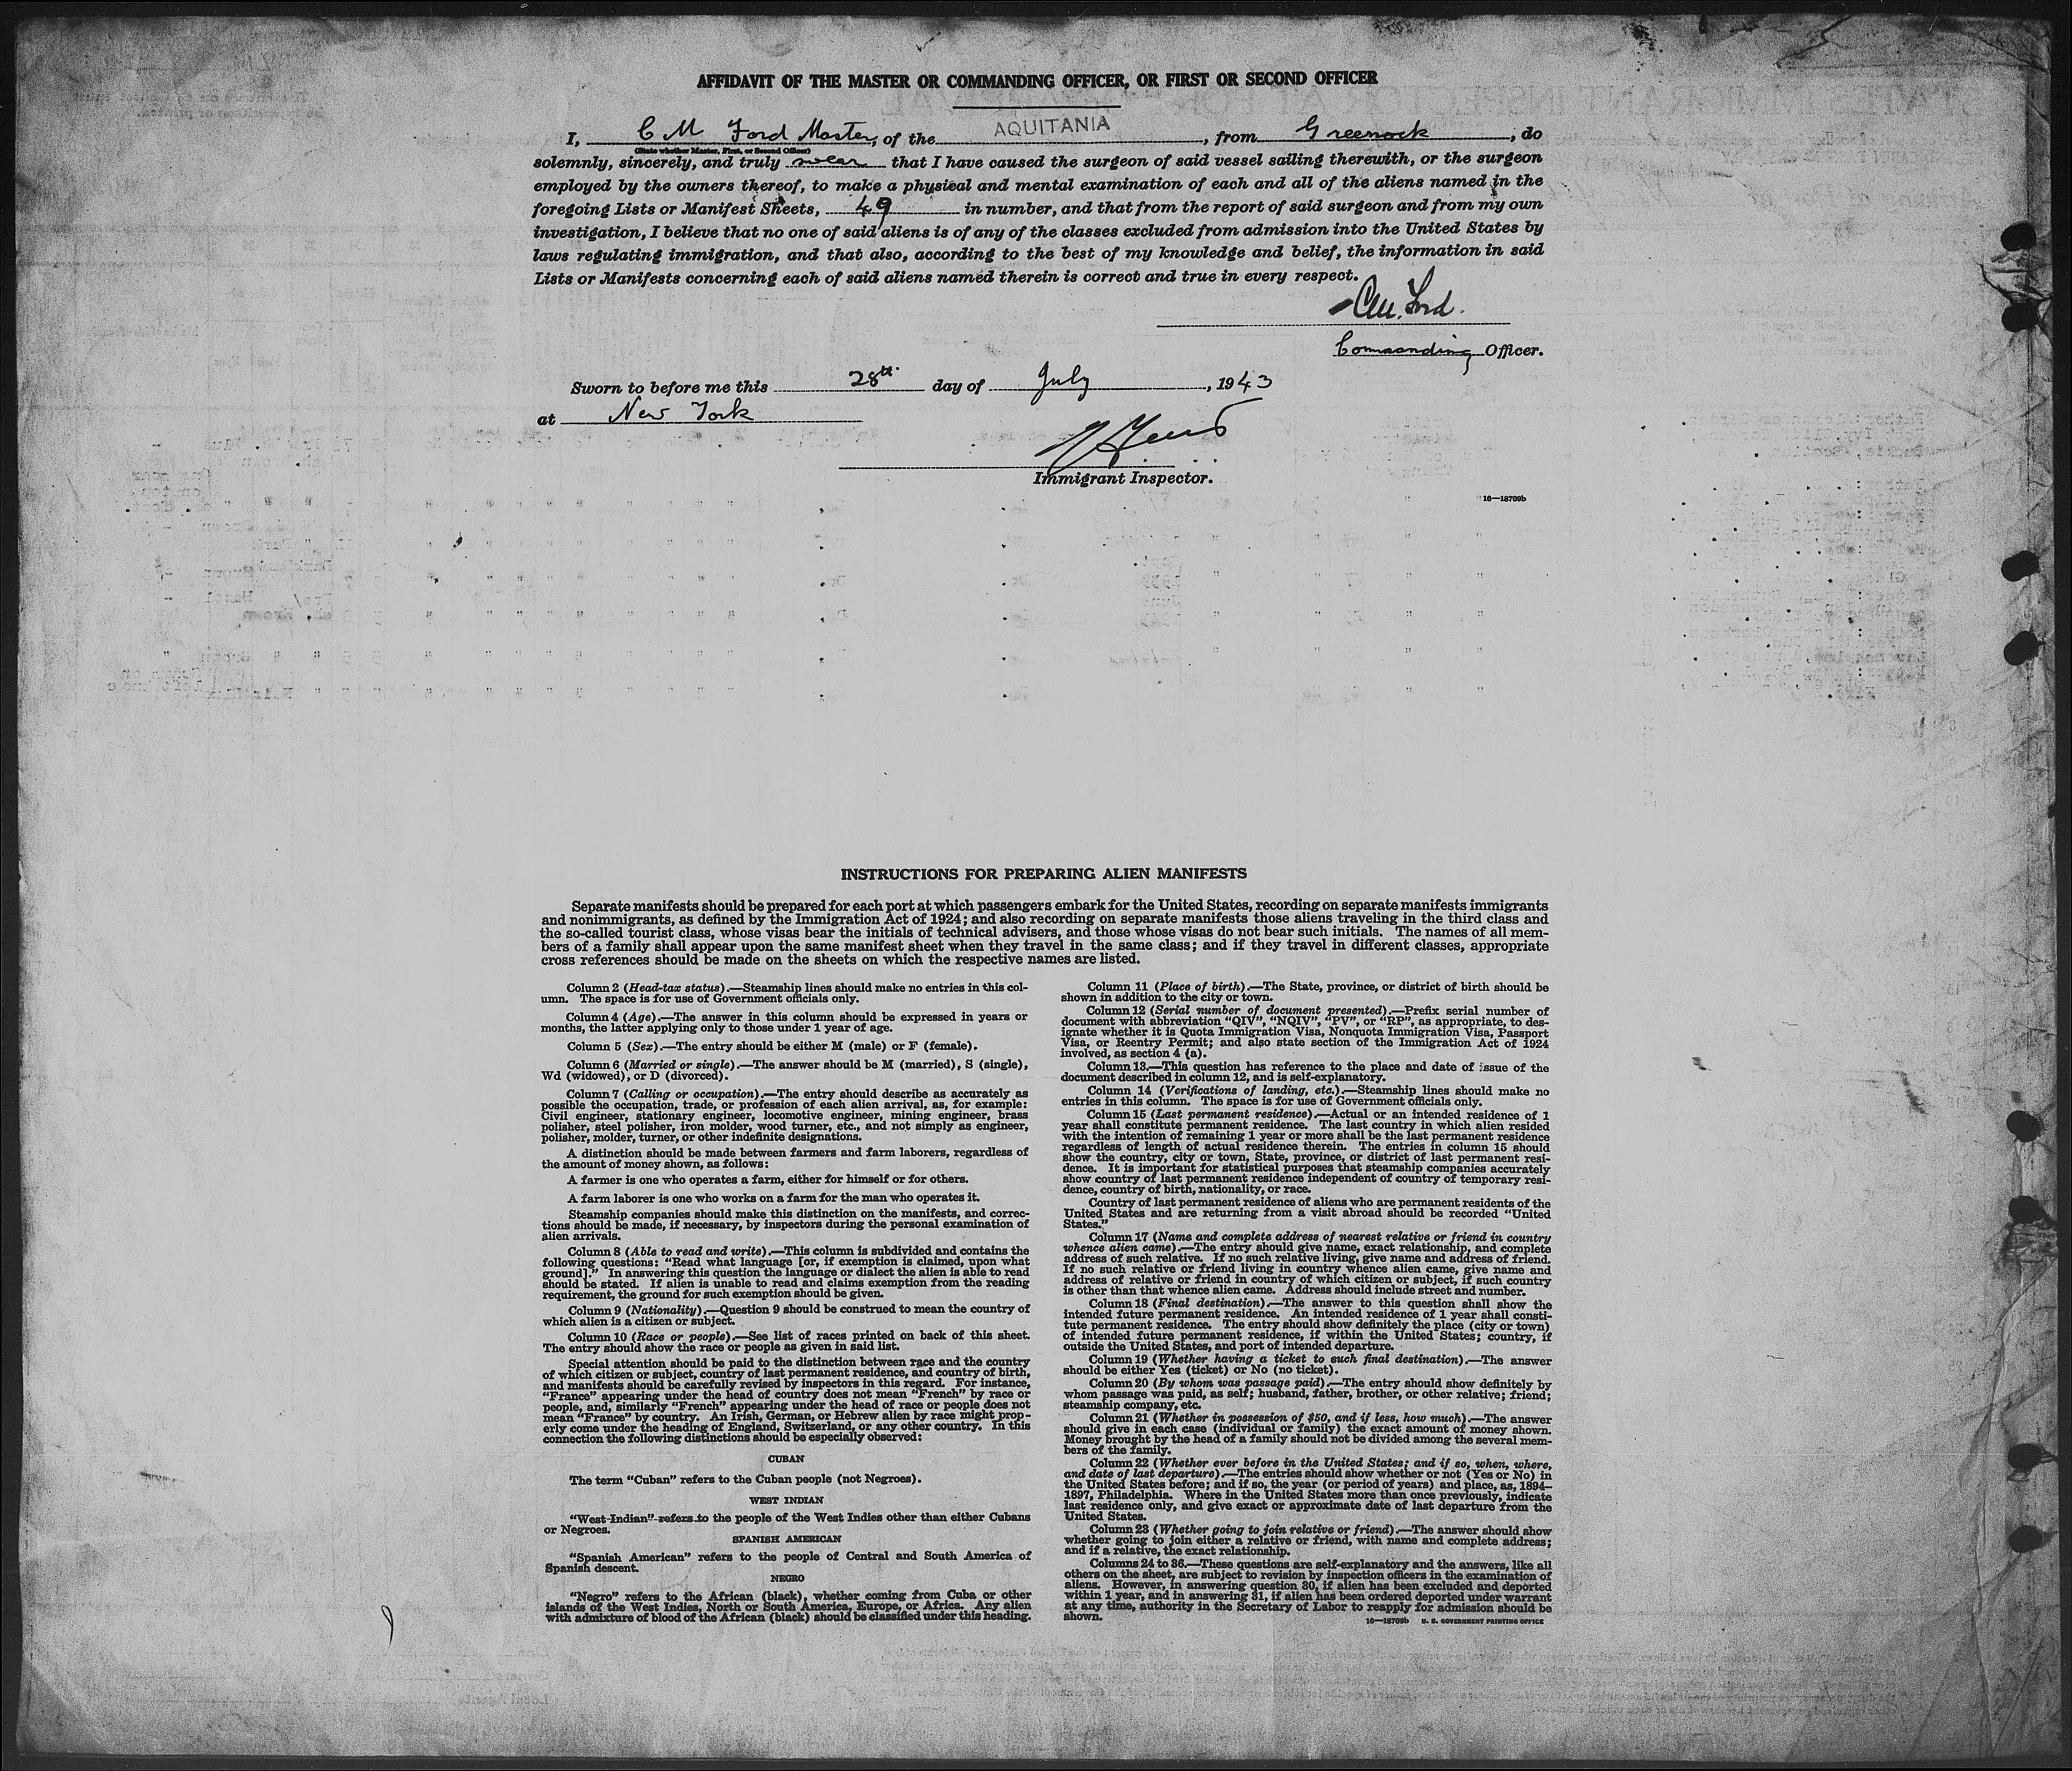 AFFIDAVIT OF THE MASTER OR COMMANDING OFFICER, OR FIRST OR SECOND OFFICER
I, C M Ford Master, of the AQUITANIA, from Greenock, do
(State whether Master, First, or Second Officer)
solemnly, sincerely, and truly swear that I have caused the surgeon of said vessel sailing therewith, or the surgeon
employed by the owners thereof, to make a physical and mental examination of each and all of the aliens named in the
foregoing Lists or Manifest Sheets, 49 in number, and that from the report of said surgeon and from my own
investigation, I believe that no one of said aliens is of any of the classes excluded from admission into the United States by
laws regulating immigration, and that also, according to the best of my knowledge and belief, the information in said
Lists or Manifests concerning each of said aliens named therein is correct and true in every respect.
C M. Ford.
Commanding Officer.
Sworn to before me this 28th day of July, 1943
at New York
Immigrant Inspector.
16—18709b
INSTRUCTIONS FOR PREPARING ALIEN MANIFESTS
Separate manifests should be prepared for each port at which passengers embark for the United States, recording on separate manifests immigrants
and nonimmigrants, as defined by the Immigration Act of 1924; and also recording on separate manifests those aliens traveling in the third class and
the so-called tourist class, whose visas bear the initials of technical advisers, and those whose visas do not bear such initials. The names of all mem-
bers of a family shall appear upon the same manifest sheet when they travel in the same class; and if they travel in different classes, appropriate
cross references should be made on the sheets on which the respective names are listed.
Column 2 (Head-tax status).—Steamship lines should make no entries in this col-
umn. The space is for use of Government officials only.
Column 4 (Age).—The answer in this column should be expressed in years or
months, the latter applying only to those under 1 year of age.
Column 5 (Sex).—The entry should be either M (male) or F (female).
Column 6 (Married or single).—The answer should be M (married), S (single),
Wd (widowed), or D (divorced).
Column 7 (Calling or occupation).—The entry should describe as accurately as
possible the occupation, trade, or profession of each alien arrival, as, for example:
Civil engineer, stationary engineer, locomotive engineer, mining engineer, brass
polisher, steel polisher, iron molder, wood turner, etc., and not simply as engineer,
polisher, molder, turner, or other indefinite designations.
A distinction should be made between farmers and farm laborers, regardless of
the amount of money shown, as follows:
A farmer is one who operates a farm, either for himself or for others.
A farm laborer is one who works on a farm for the man who operates it.
Steamship companies should make this distinction on the manifests, and correc-
tions should be made, if necessary, by inspectors during the personal examination of
alien arrivals.
Column 8 (Able to read and write).—This column is subdivided and contains the
following questions: "Read what language [or, if exemption is claimed, upon what
ground]." In answering this question the language or dialect the alien is able to read
should be stated. If alien is unable to read and claims exemption from the reading
requirement, the ground for such exemption should be given.
Column 9 (Nationality).—Question 9 should be construed to mean the country of
which alien is a citizen or subject.
Column 10 (Race or people).—See list of races printed on back of this sheet.
The entry should show the race or people as given in said list.
Special attention should be paid to the distinction between race and the country
of which citizen or subject, country of last permanent residence, and country of birth,
and manifests should be carefully revised by inspectors in this regard. For instance,
"France" appearing under the head of country does not mean "French" by race or
people, and, similarly "French" appearing under the head of race or people does not
mean "France" by country. An Irish, German, or Hebrew alien by race might prop-
erly come under the heading of England, Switzerland, or any other country. In this
connection the following distinctions should be especially observed:
CUBAN
The term "Cuban" refers to the Cuban people (not Negroes).
WEST INDIAN
"West Indian" refers to the people of the West Indies other than either Cubans
or Negroes.
SPANISH AMERICAN
"Spanish American" refers to the people of Central and South America of
Spanish descent.
NEGRO
"Negro" refers to the African (black), whether coming from Cuba or other
islands of the West Indies, North or South America, Europe, or Africa. Any alien
with admixture of blood of the African (black) should be classified under this heading.
Column 11 (Place of birth).—The State, province, or district of birth should be
shown in addition to the city or town.
Column 12 (Serial number of document presented).—Prefix serial number of
document with abbreviation "QIV", "NQIV", "PV", or "RP", as appropriate, to des-
ignate whether it is Quota Immigration Visa, Nonquota Immigration Visa, Passport
Visa, or Reentry Permit; and also state section of the Immigration Act of 1924
involved, as section 4 (a).
Column 13.—This question has reference to the place and date of issue of the
document described in column 12, and is self-explanatory.
Column 14 (Verifications of landing, etc.).—Steamship lines should make no
entries in this column. The space is for use of Government officials only.
Column 15 (Last permanent residence).—Actual or an intended residence of 1
year shall constitute permanent residence. The last country in which alien resided
with the intention of remaining 1 year or more shall be the last permanent residence
regardless of length of actual residence therein. The entries in column 15 should
show the country, city or town, State, province, or district of last permanent resi-
dence. It is important for statistical purposes that steamship companies accurately
show country of last permanent residence independent of country of temporary resi-
dence, country of birth, nationality, or race.
Country of last permanent residence of aliens who are permanent residents of the
United States and are returning from a visit abroad should be recorded "United
States."
Column 17 (Name and complete address of nearest relative or friend in country
whence alien came).—The entry should give name, exact relationship, and complete
address of such relative. If no such relative living, give name and address of friend.
If no such relative or friend living in country whence alien came, give name and
address of relative or friend in country of which citizen or subject, if such country
is other than that whence alien came. Address should include street and number.
Column 18 (Final destination).—The answer to this question shall show the
intended future permanent residence. An intended residence of 1 year shall consti-
tute permanent residence. The entry should show definitely the place (city or town)
of intended future permanent residence, if within the United States; country, if
outside the United States, and port of intended departure.
Column 19 (Whether having a ticket to such final destination).—The answer
should be either Yes (ticket) or No (no ticket).
Column 20 (By whom was passage paid).—The entry should show definitely by
whom passage was paid, as self; husband, father, brother, or other relative; friend;
steamship company, etc.
Column 21 (Whether in possession of $50, and if less, how much).—The answer
should give in each case (individual or family) the exact amount of money shown.
Money brought by the head of a family should not be divided among the several mem-
bers of the family.
Column 22 (Whether ever before in the United States; and if so, when, where,
and date of last departure).—The entries should show whether or not (Yes or No) in
the United States before; and if so, the year (or period of years) and place, as, 1894–
1897, Philadelphia. Where in the United States more than once previously, indicate
last residence only, and give exact or approximate date of last departure from the
United States.
Column 23 (Whether going to join relative or friend).—The answer should show
whether going to join either a relative or friend, with name and complete address;
and if a relative, the exact relationship.
Columns 24 to 36.—These questions are self-explanatory and the answers, like all
others on the sheet, are subject to revision by inspection officers in the examination of
aliens. However, in answering question 30, if alien has been excluded and deported
within 1 year, and in answering 31, if alien has been ordered deported under warrant
at any time, authority in the Secretary of Labor to reapply for admission should be
shown.
16—18709b U. S. GOVERNMENT PRINTING OFFICE